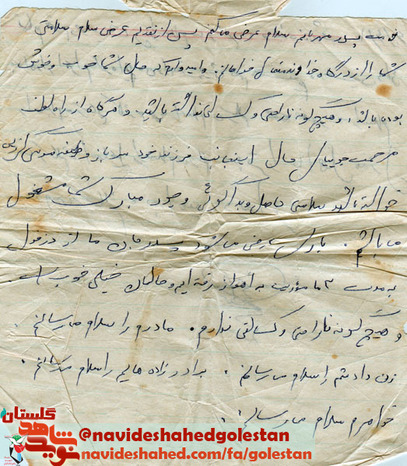 خدمت پدر مهربانم سلام عرض میکنم پس از تقدیم عرض سلام سلامتی
شما را از درگاه خداوند متعال خواهانم. و امیدوارم که حال شما خوب و خوش
بوده باشد و هیچ گونه ناراحتی و کسالتی نداشته باشید و هرگاه از راه لطف
مرحمت جویای حال اینجانب فرزند خود سرباز وظیفه
خواسته باشید سلامتی حاصل و بدعاگوئی وجود مبارک شما مشغول
میباشم. باری بعرض می‌رسد پدر جان ما از دزفول
به مدت ۳ ماه مأموریت به اهواز رفته ایم و حالمان خیلی خوب است
و هیچ گونه ناراحتی و کسالتی ندارم. مادرم را سلام می‌رسانم.
زن دادشم را سلام می‌رسانم. برادرزاده هایم را سلام می‌رسانم.
خواهرم سلام می‌رسانم.
گلستان
نوید شاهد
@navideshahedgolestan
navideshahed.com/fa/golestan